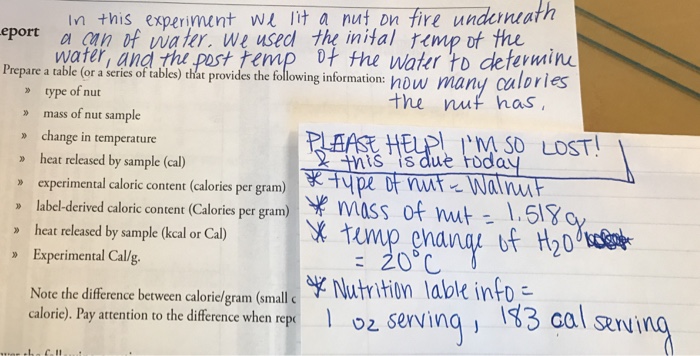 In this experiment we lit a nut on fire underneath
eport a can of water. We used the inital temp of the
water, and the post temp of the water to determine
Prepare a table (or a series of tables) that provides the following information: how many calories
the nut has.
» type of nut
» mass of nut sample
» change in temperature
» heat released by sample (cal)
» experimental caloric content (calories per gram)
» label-derived caloric content (Calories per gram)
» heat released by sample (kcal or Cal)
» Experimental Cal/g.
Note the difference between calorie/gram (small c
calorie). Pay attention to the difference when repo
PLEASE HELP! I'M SO LOST!
& this is due today
* type of nut = Walnut
* mass of nut = 1.518g
* temp change of H20
= 20°C
* Nutrition lable info =
1 oz serving, 183 cal serving